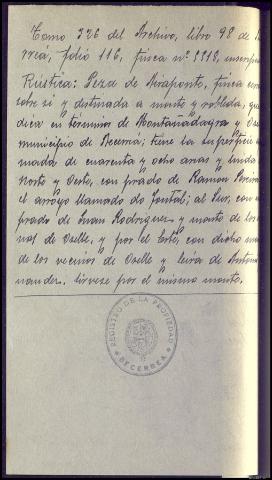 Tomo 326 del Archivo, libro 98 de
rreá, folio 116, finca nº
Rústica: Peza de
sobre sí y destinada a monte y robleda,
dica en términos de Montañadagra y
municipio de Becerreá; tiene la superficie
mada de cuarenta y ocho áreas y linda
Norte y Oeste, con prado de Ramón Pereira
el arroyo llamado do Fontal; al Sur, con
prado de Juan Rodríguez y monte de los
nos de Oselle, y por el Este, con dicho
de los vecinos de Oselle y leira de Antonio
nández. Sírvese por el mismo monte.
REGISTRO DE LA PROPIEDAD
BECERREA